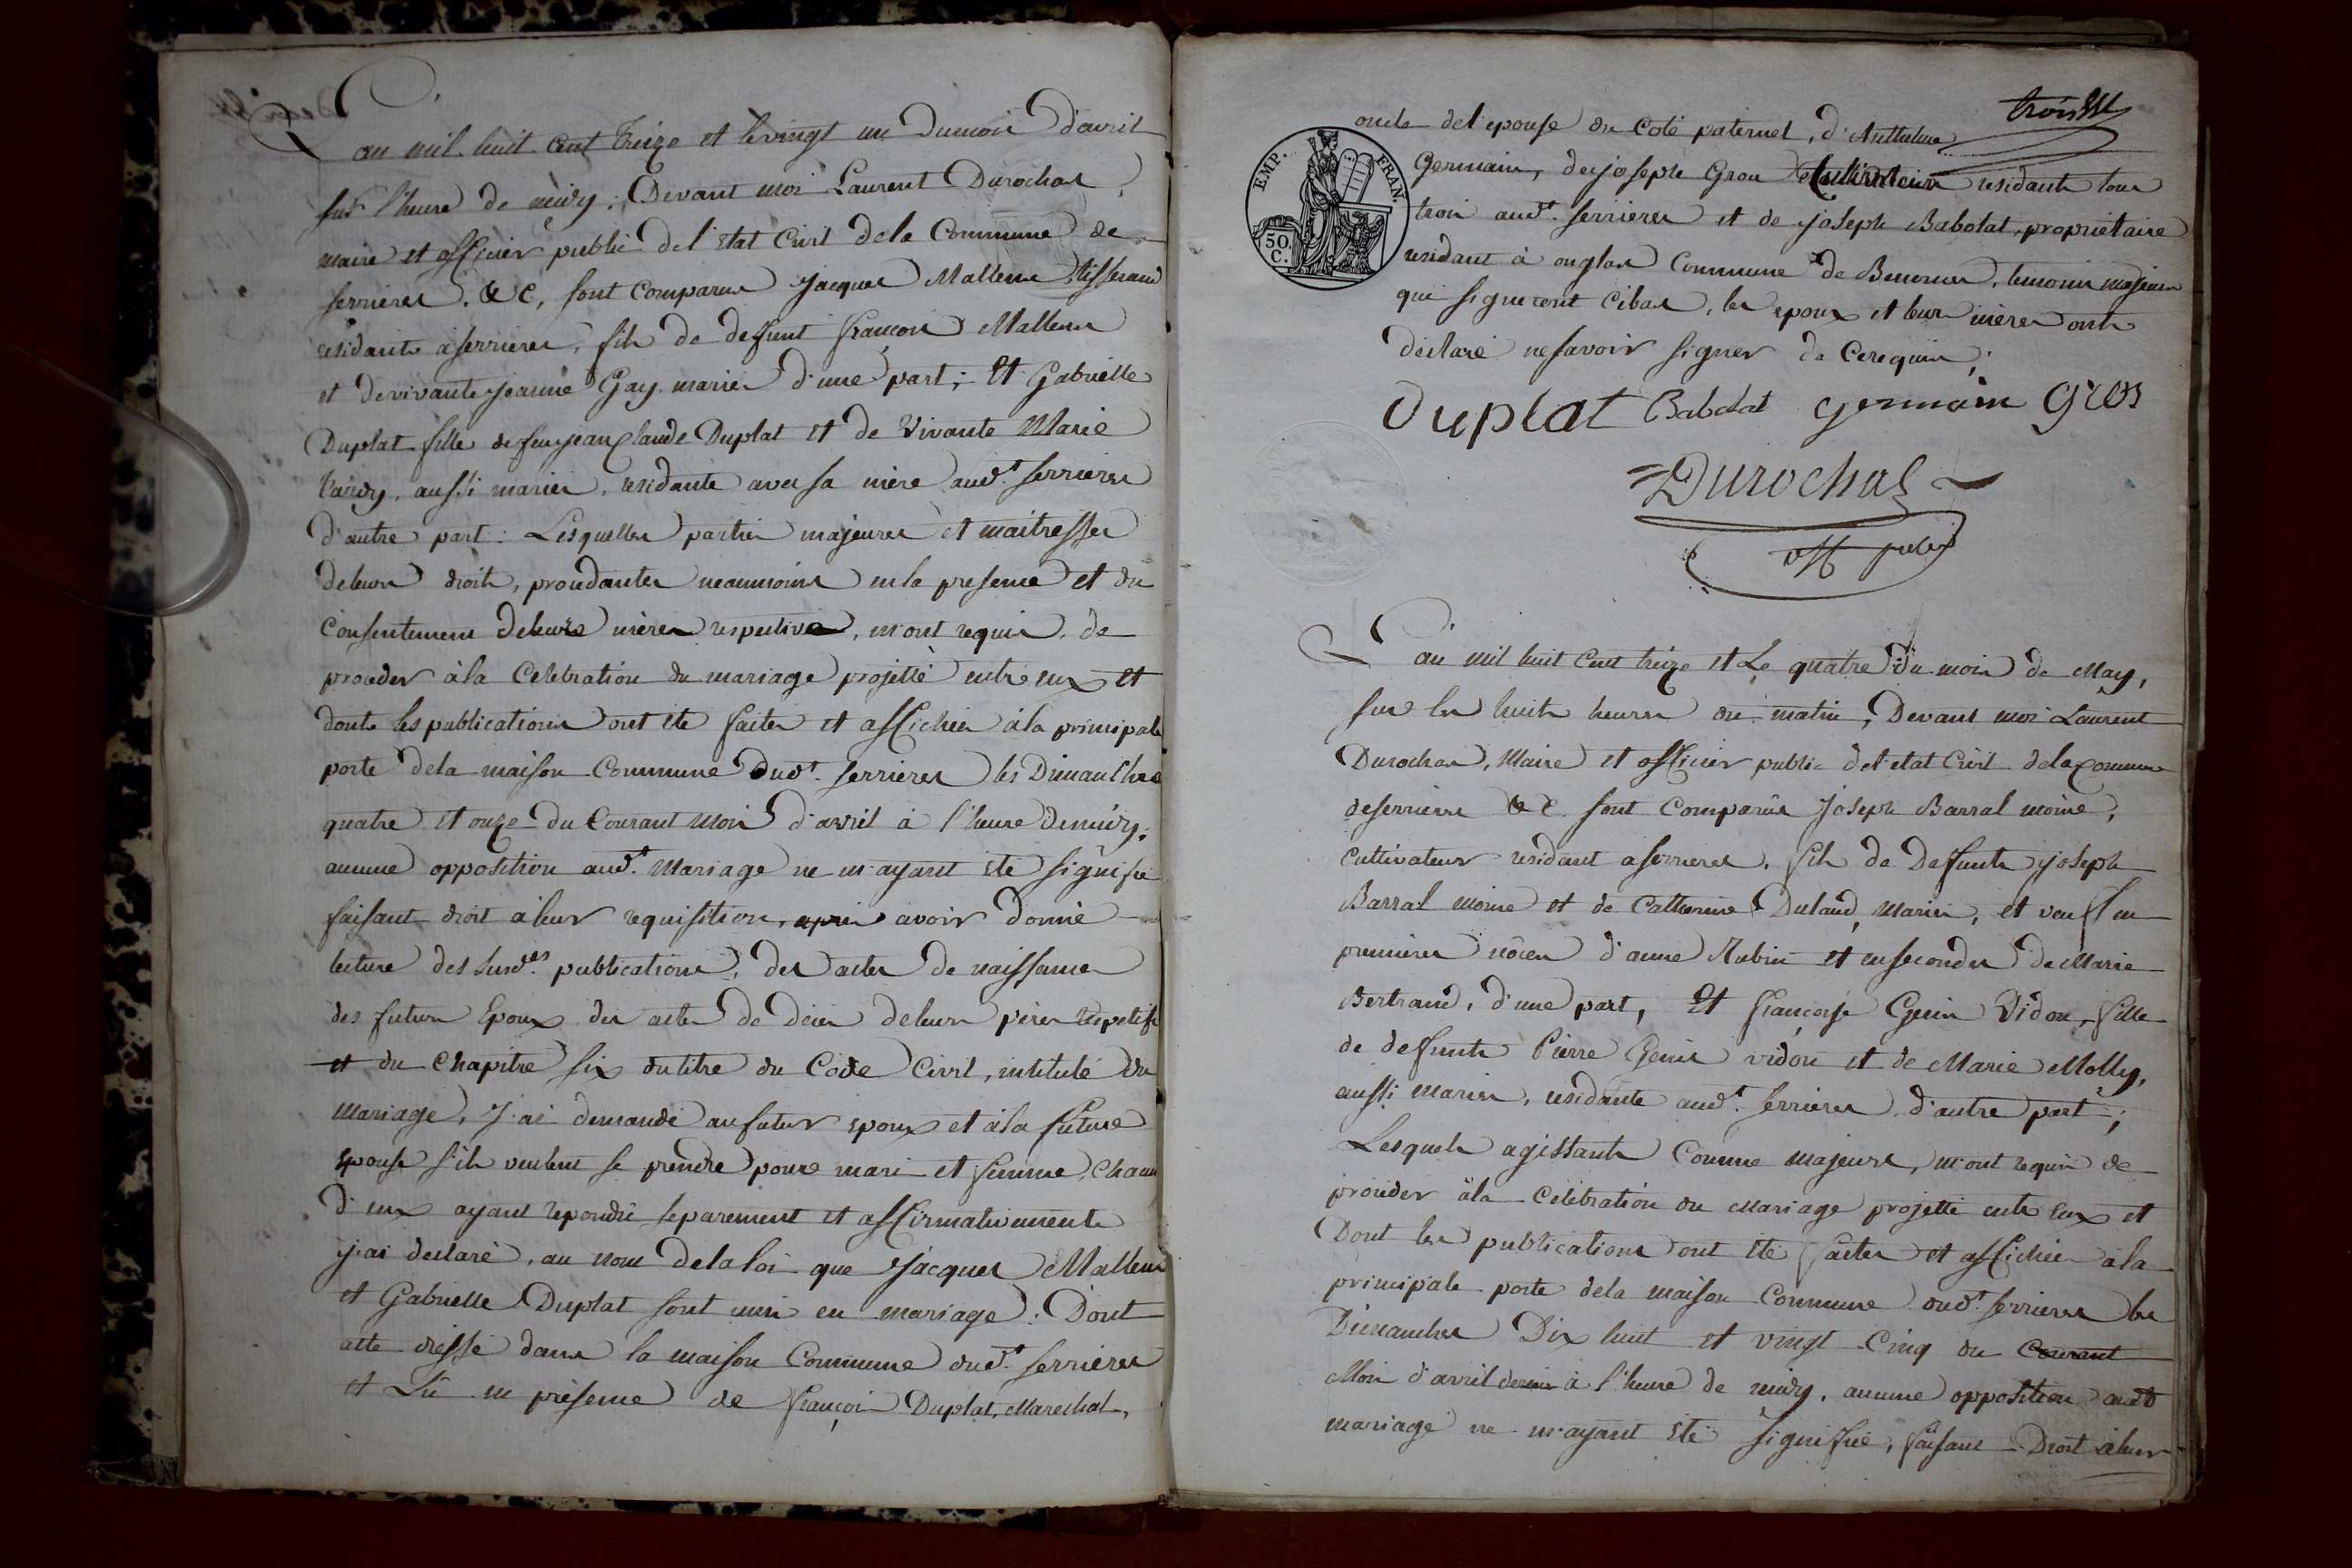 L'an mil huit cent treize et le vingt un du mois d'avril
sur l'heure de midy; Devant moi Laurent Durochat,
maire et officier public de l'etat Civil de la Commune de
serrieres. &c, sont comparus jacques Mallens tisserand
residant à serrieres, fils de defunt françois Mallens
et de vivante jeanne Gay mariés d'une part; Et Gabrielle
Duplat fille de feu jean Claude Duplat et de Vivante Marie
aussi mariés, residante avec sa mère aud.t serrieres
d'autre part: Lesquelles parties majeures et maitresses
de leurs droits, procedantes neanmoins en la presence et du
consentement de leurs mères respectives, m'ont requis, de
proceder à la Celebration du mariage projetté entre eux et
dont les publications ont ete faites et affichées à la principale
porte de la maison Commune dud.t serrieres les Dimanches
quatre et onze du Courant mois d'avril à l'heure de midy;
aucune opposition aud.t Mariage ne m'ayant ete signifiée
faisant droit à leur requisition, après avoir donné
lecture des susd.es publications, des actes de naissance
des futurs Epoux des actes de décès de leurs pères respectifs
et du Chapitre six du titre du Code Civil, intitulé du
mariage, J'ai demandé au futur epoux et à la future
epouse s'ils veulent se prendre pour mari et femme, chacun
d'eux ayant repondu separement et affirmativement
j'ai declaré, au nom de la loi que Jacques Mallens
et Gabrielle Duplat sont unis en mariage: Dont
acte dressé dans la maison Commune dud.t serrieres
et Lu en présence de françois Duplat, Marechal,
trois
oncle de l'epouse du Coté paternel, d'Anthelme
Germain, de joseph Grou Cultivateurs residants tous
EMP. FRAN.
50. C.
trois aud.t serrieres et de joseph Babolat, proprietaire
residant à onglas Commune de Benonces, temoins majeurs
qui signeront cibas, les epoux et leurs mères ont
declaré ne savoir signer de Ce requis;
Duplat Babolat germain gros
Durochat
off public
L'an mil huit Cent treize et Le quatre du mois de May,
sur les huit heures du matin, Devant moi Laurent
Durochat, Maire et officier public de l'etat Civil de la Commune
de serrieres &c sont Comparus Joseph Barral moine,
cultivateur residant a serrieres, fils de Defunts joseph
Barral moine et de Catherine Dulaud, Mariés, et veuf en
premieres nôces d'anne Rubin et en secondes de Marie
Bertrand, d'une part, Et françoise Genin Vidon, fille
de defunts Pierre Genin vidon et de Marie Molley,
aussi mariés, residante aud.t serrieres, d'autre part;
Lesquels agissants Comme majeurs, m'ont requis de
proceder à la Celebration du Mariage projetté entre Eux et
Dont les publications ont ete faites et affichées à la
principale porte de la maison Commune dud.t serrieres les
Dimanches Dix huit et vingt Cinq du Courant
Mois d'avril dernier à l'heure de midy, aucune opposition aud.t
mariage ne m'ayant ete signifiée, faisant Droit à leur